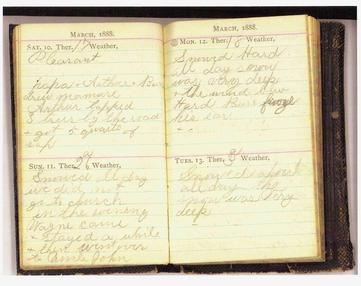 MARCH, 1888.
SAT. 10. Ther. 12 Weather,
Pleasant
papa + Arthur + Burr
drew manure
Arthur tapped
3 trees by the road
+ got 5 quarts of
sap
SUN. 11. Ther. Weather,
Snowed all day
we did not
go to church
in the evening
Wayne came
+ stayed a while
+ then went over
to uncle John
MARCH, 1888.
MON. 12. Ther. Weather,
Snowed Hard
all day snow
was very deep
+ the wind blew
Hard Burr froze
his ear
TUES. 13. Ther. Weather,
Snowed
all day the
snow was very
deep